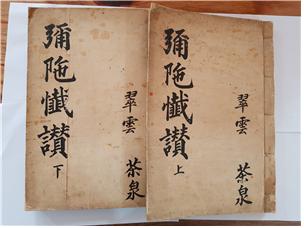 彌陁懺讃
上
翠雲
茶泉
彌陁懺讃
下
翠雲
茶泉